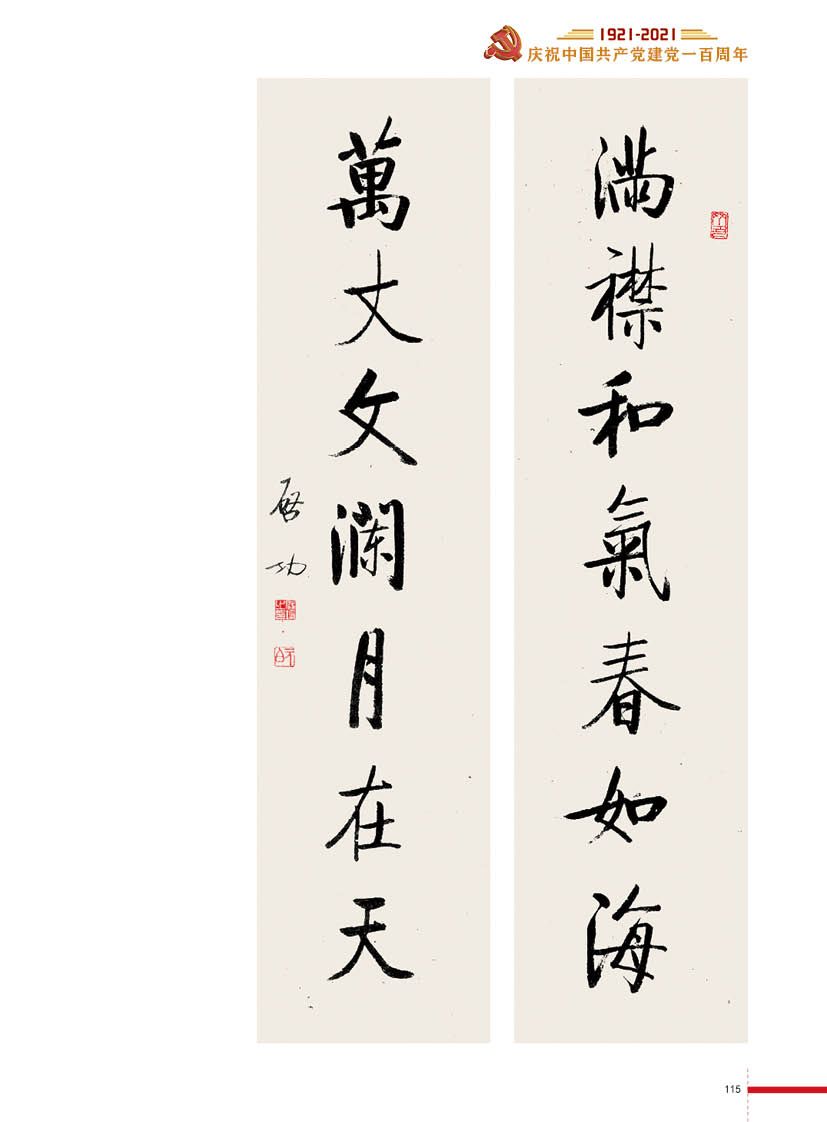 1921-2021
庆祝中国共产党建党一百周年
满襟和氣春如海
萬丈文澜月在天
启功
115